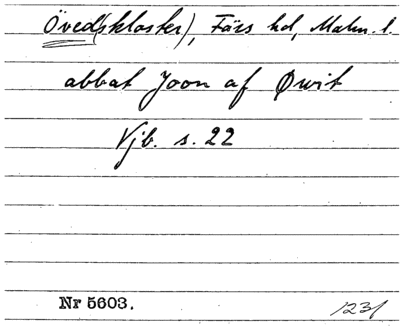 Öved(skloster), Färs hd, Malm. l.
abbat Joon af Øwit
Vjb. s. 22
Nr 5603.
1231